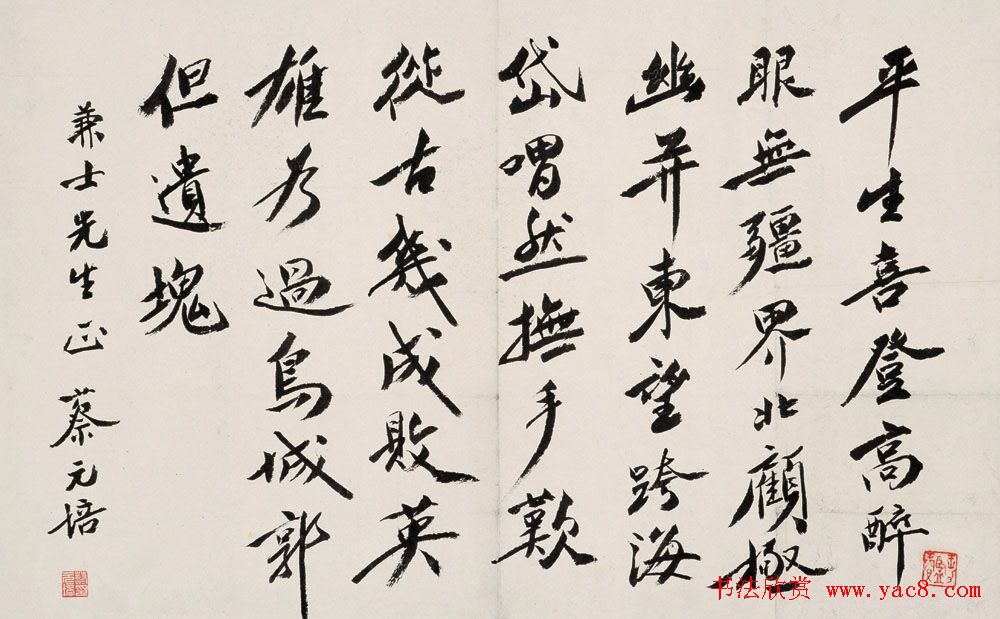 平生喜登高醉
眼無疆界北顧極
幽并東望跨海
岱喟然撫手歎
從古幾成敗英
雄為過鳥城郭
但遺塊
兼士先生正 蔡元培
书法欣赏 www.yac8.com